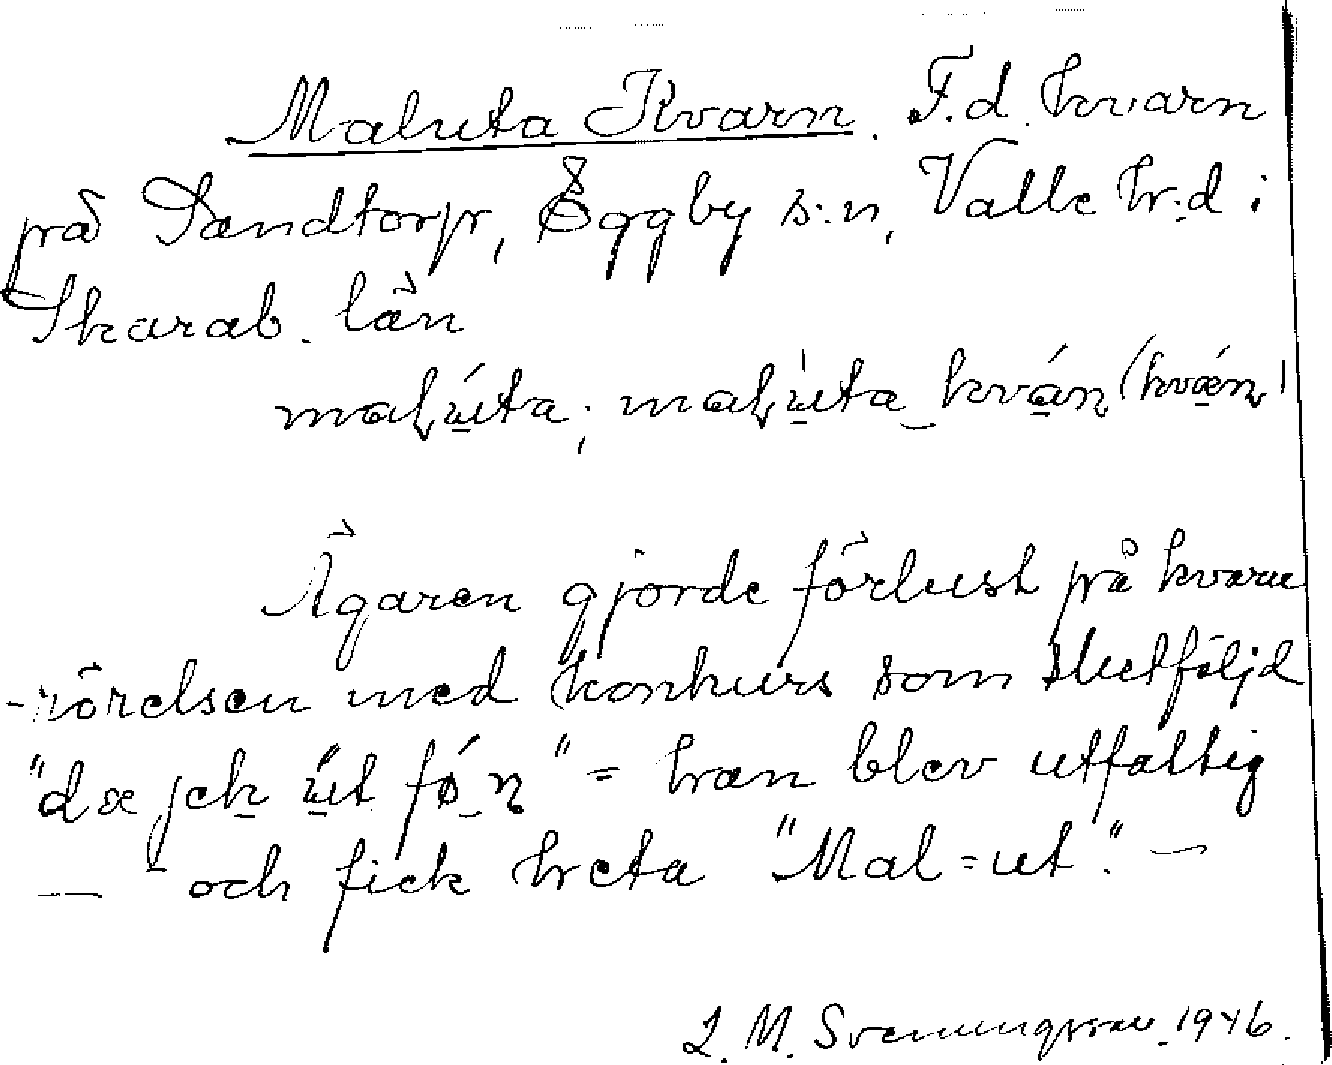 Maluta Kvarn. F.d. kvarn
på Sandtorp, Eggby s:n, Valle hr:d i
Skarab. län
maḷúta; maḷúta kván (kvǽn)
Ägaren gjorde förlust på kvarn
-rörelsen med konkurs som slutföljd
"dæ jek út fö n" = han blev utfattig
— och fick heta "Mal=ut". —
L. M. Svenungsson 1946.